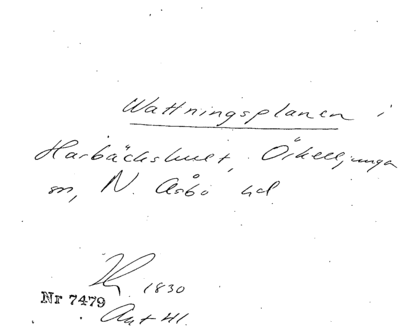 Wattningsplanen i
Harbäckshult, Örkelljunga
sn, N. Åsbo hd.
1830
Nr 7479
Ant Hl.